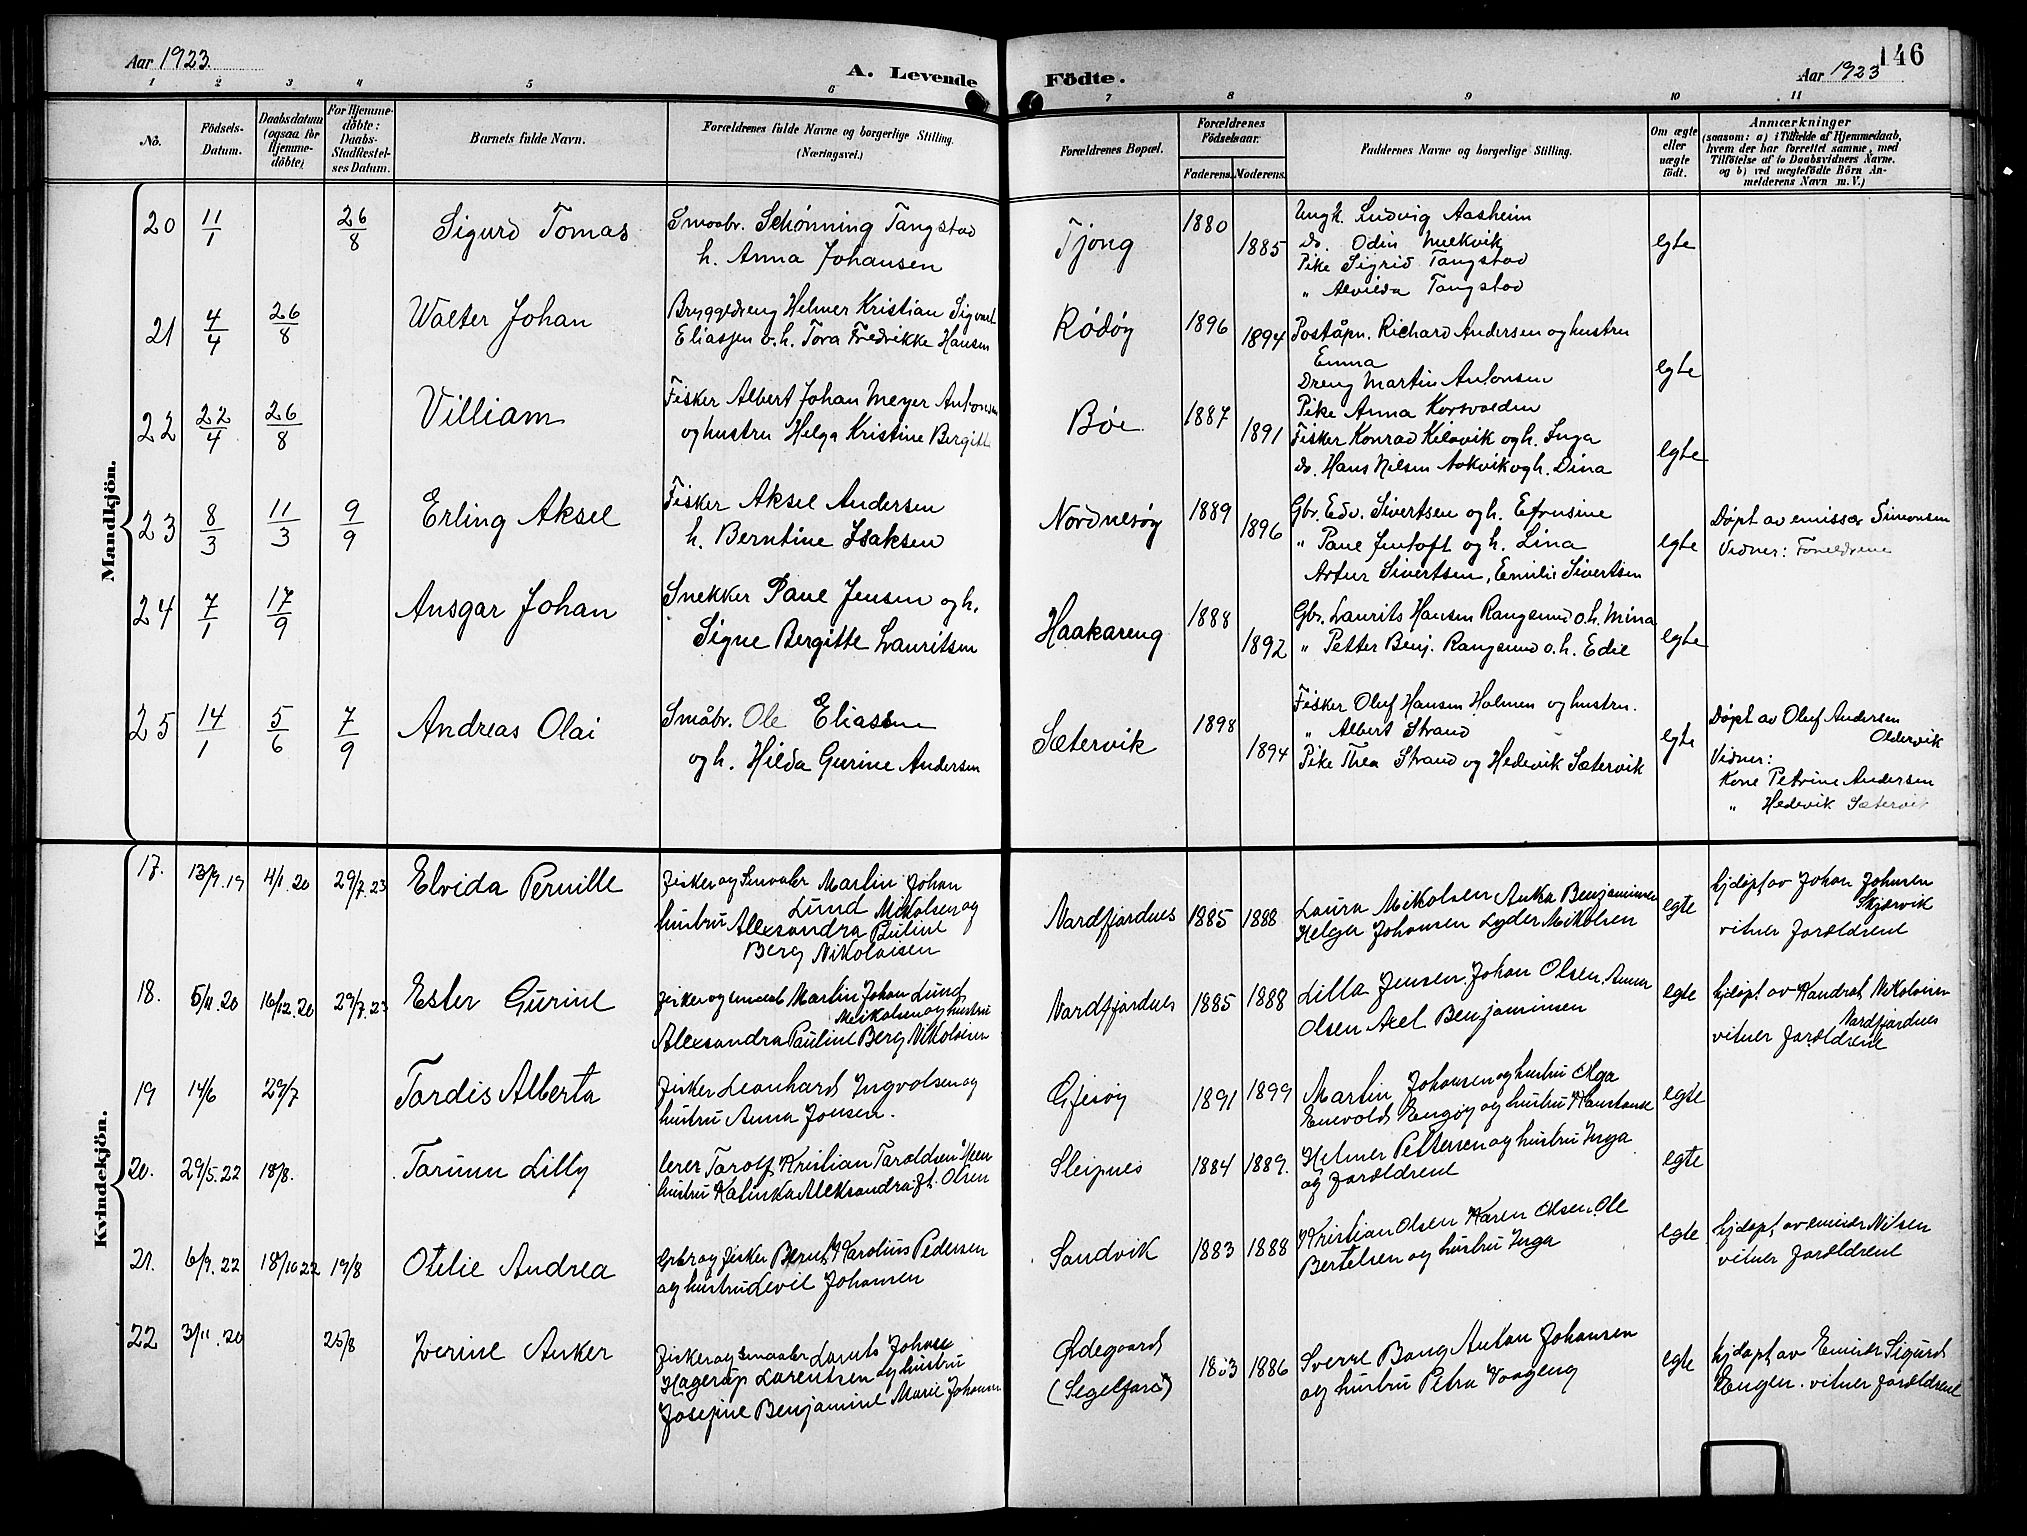 Aar 1923.
A. Levende Födte.
Aar 1923
146
1 2 3 4 5 6 7 8 9 10 11
No.
Födsels-
Datum.
Daabsdatum
(ogsaa for
Hjemme-
döbte)
For Hjemme-
döbte:
Daabs-
Stadfæstel-
ses Datum.
Barnets fulde Navn.
Forældrenes fulde Navne og borgerlige Stilling.
(Næringsvei.)
Forældrenes Bopæl.
Forældrenes
Födselsaar.
Faderens.
Moderens.
Faddernes Navne og borgerlige Stilling.
Om ægte
eller
uægte
født.
Anmærkninger
(saasom: a) i Tilfælde af Hjemmedaab,
hvem der har forrettet samme, med
Tilföielse af to Daabsvidners Navne.
og b) ved uægtefödte Börn An-
melderens Navn m. V.)
Mandkjön.
20 11/1 26/8 Sigurd Tomas Smaabr. Schønning Tangstad
h. Anna Johansen
Tjong 1880 1885
Ungk. Ludvig Aasheim
do. Odin
Pike Sigrid Tangstad
" Alvilda Tangstad
egte
21 4/4 26/8 Walter Johan Bryggedreng Helmer Kristian Sigvart
Eliassen o.h. Tora Fredrikke Hansen
Rödöy 1896 1894
Poståpn. Richard Andersen og hustru
Emma
Dreng Martin Antonsen
egte
22 22/4 26/8 Villiam Fisker Albert Johan Meyer Antonsen
og hustru Helga Kristine Bergitte
Bøe 1887 1891
Pike Anna Korsvolden
Fisker Konrad Kilvik og h. Inga
do. Hans Nilsen Aakvik og h. Dina
egte
23 8/3 11/3 9/9 Erling Aksel Fisker Aksel Andersen
h. Berntine Isaksen
Nordnesøy 1889 1896
Gbr. Edv. Sivertsen og h. Efrusine
" Paul Jentoft og h. Lina
Artur Sivertsen, Emilie Sivertsen
egte
Døpt av emissær Simonsen
Vidner: Foreldrene
24 7/1 17/9 Ansgar Johan Snekker Paul Jensen og h.
Signe Bergitte Lauritsen
Haakareng 1888 1892
Gbr. Laurits Hansen Rangsund o.h. Mina
" Petter Benj. Rangsund o.h. Edel
egte
25 14/1 5/6 7/9 Andreas Olai Småbr. Ole Eliassen
og h. Hilda Gurine Andersen
Sætervik 1898 1894
Fisker Oluf Hansen Holmen og hustru.
" Albert Strand
Pike Thea Strand og Hedevik Sætervik
egte
Døpt av Oluf Andersen
Oldervik
Vidner:
Kone Petrine Andersen
" Hedevik Sætervik
Kvindekjön.
17. 13/9.19 4/1.20 29/7.23 Elvida Pernille Fisker og Smaabr Martin Johan
Lund Mikolsen og
hustru Alexsandra Puline
Berg Nikolaisen
Nardfjordnes 1885 1888
Laura Mikolsen Anka Benjaminsen
Helga Johansen Lyder Mikolsen
egte
hjdøpt av Johan Johnsen
Skjærvik
vitner forældrene
18. 5/11.20 16/12.20 29/7.23 Ester Gurine Fisker og smaab Martin Johan Lund
Meikolsen og hustru
Alexsandra Pauline Berg Nikolaisen
Nardfjordnes 1885 1888
Lilla Jensen. Johan Olsen. Anna
Olsen Axel Benjaminsen
egte
hjdøpt av Kandrat Nikolaisen
Nardfjordnes
vitner forældrene
19 14/6 29/7 Tordis Alberta Fisker Leonhard Ingvolsen og
hustru Anna Jonsen.
Gjesøy 1891 1899
Martin Johansen og hustru Olga
Enevold Engøy og hustru Konstanse
egte
20. 29/5.22 18/8. Torunn Lilly lerer Torolf Kristian Taroldsen Meen
hustru Katinka Aleksandra ft. Olsen
Sleipnes 1884 1889.
Helmer Pettersen og hustru Inga
og forældrene
egte
21. 6/9.22 18/10 22 19/8 Otilie Andrea Gbr og fisker Bernt Karolius Pedersen
og hustru Levil Johansen
Sandvik 1883 1888
Kristian Olsen Karen Olsen. Ole
Bertelsen og hustru Inga
egte
hjdøpt av emisær Nilsen
vitner forældrene
22 3/11.20 25/8 Iverine Anker Fisker og smaabr Laruts Johan
Hagerup Larentsen og hustru
Josefine Benjamine Marie Johansen
Ødegaard
(Segelfore) 1883 1886
Sverre Bang Anton Johansen
og hustru Petra Vaageng
egte
hjdøpt av Emisær Sigurd
Engen. vitner forældrene